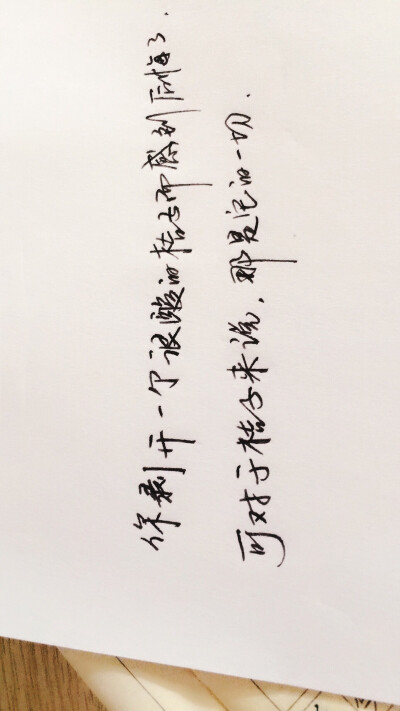 你剥开一个很酸的桔子而感到后悔了.
可对于桔子来说,那是它的一切.